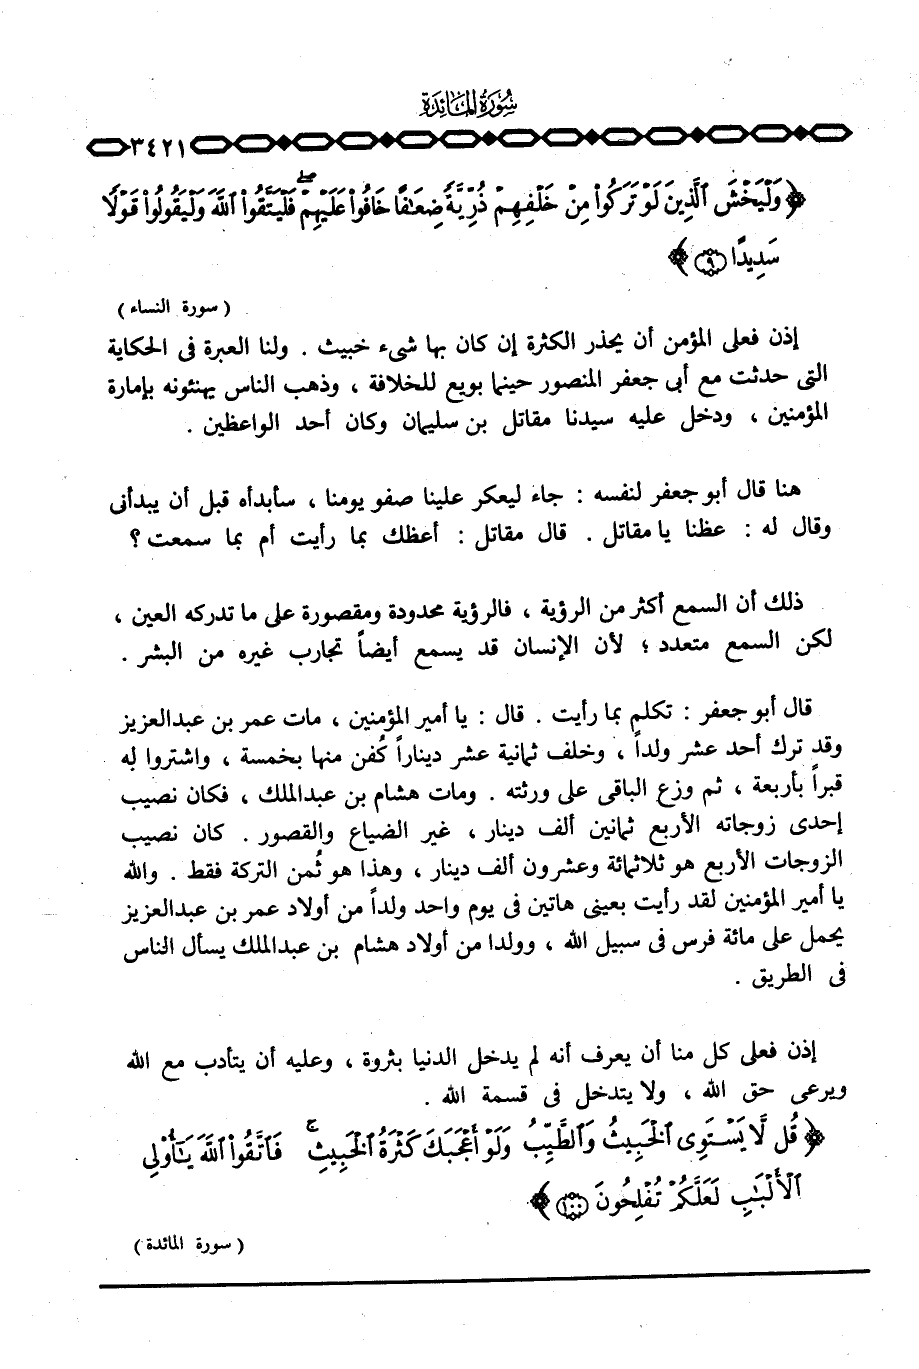 سُورَةُ المَائِدَة
٣٤٢١
﴿ وَلْيَخْشَ ٱلَّذِينَ لَوْ تَرَكُوا۟ مِنْ خَلْفِهِمْ ذُرِّيَّةً ضِعَٰفًا خَافُوا۟ عَلَيْهِمْ فَلْيَتَّقُوا۟ ٱللَّهَ وَلْيَقُولُوا۟ قَوْلًا
سَدِيدًا ۝٩ ﴾
( سورة النساء )
إذن فعلى المؤمن أن يحذر الكثرة إن كان بها شىء خبيث . ولنا العبرة فى الحكاية
التى حدثت مع أبى جعفر المنصور حينما بويع للخلافة ، وذهب الناس يهنئونه بإمارة
المؤمنين ، ودخل عليه سيدنا مقاتل بن سليمان وكان أحد الواعظين .
هنا قال أبو جعفر لنفسه : جاء ليعكر علينا صفو يومنا ، سأبدأه قبل أن يبدأنى
وقال له : عظنا يا مقاتل . قال مقاتل : أعظك بما رأيت أم بما سمعت ؟
ذلك أن السمع أكثر من الرؤية ، فالرؤية محدودة ومقصورة على ما تدركه العين ،
لكن السمع متعدد ؛ لأن الإنسان قد يسمع أيضاً تجارب غيره من البشر .
قال أبو جعفر : تكلم بما رأيت . قال : يا أمير المؤمنين ، مات عمر بن عبدالعزيز
وقد ترك أحد عشر ولداً ، وخلف ثمانية عشر ديناراً كُفن منها بخمسة ، واشتروا له
قبراً بأربعة ، ثم وزع الباقى على ورثته . ومات هشام بن عبدالملك ، فكان نصيب
إحدى زوجاته الأربع ثمانين ألف دينار ، غير الضياع والقصور . كان نصيب
الزوجات الأربع هو ثلاثمائة وعشرون ألف دينار ، وهذا هو ثُمن التركة فقط . والله
يا أمير المؤمنين لقد رأيت بعينى هاتين فى يوم واحد ولداً من أولاد عمر بن عبدالعزيز
يحمل على مائة فرس فى سبيل الله ، وولدا من أولاد هشام بن عبدالملك يسأل الناس
فى الطريق .
إذن فعلى كل منا أن يعرف أنه لم يدخل الدنيا بثروة ، وعليه أن يتأدب مع الله
ويرعى حق الله ، ولا يتدخل فى قسمة الله .
﴿ قُل لَّا يَسْتَوِى ٱلْخَبِيثُ وَٱلطَّيِّبُ وَلَوْ أَعْجَبَكَ كَثْرَةُ ٱلْخَبِيثِ ۚ فَٱتَّقُوا۟ ٱللَّهَ يَٰٓأُو۟لِى
ٱلْأَلْبَٰبِ لَعَلَّكُمْ تُفْلِحُونَ ۝١٠٠ ﴾
( سورة المائدة )